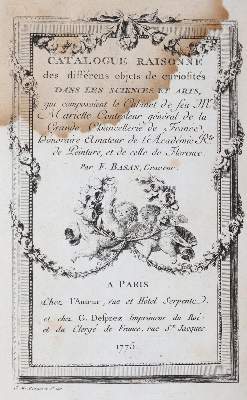 CATALOGUE RAISONNÉ
des différens objets de curiosités
DANS LES SCIENCES ET ARTS,
qui composoient le Cabinet de feu Mr.
Mariette Controleur général de la
Grande Chancellerie de France,
honoraire Amateur de l'Académie Rle.
de Peinture, et de celle de Florence.
Par F. BASAN, Graveur.
A PARIS
Chez l'Auteur, rue et Hôtel Serpente.
et chez G. Desprez Imprimeur du Roi
et du Clergé de France, rue St. Jacques.
1775